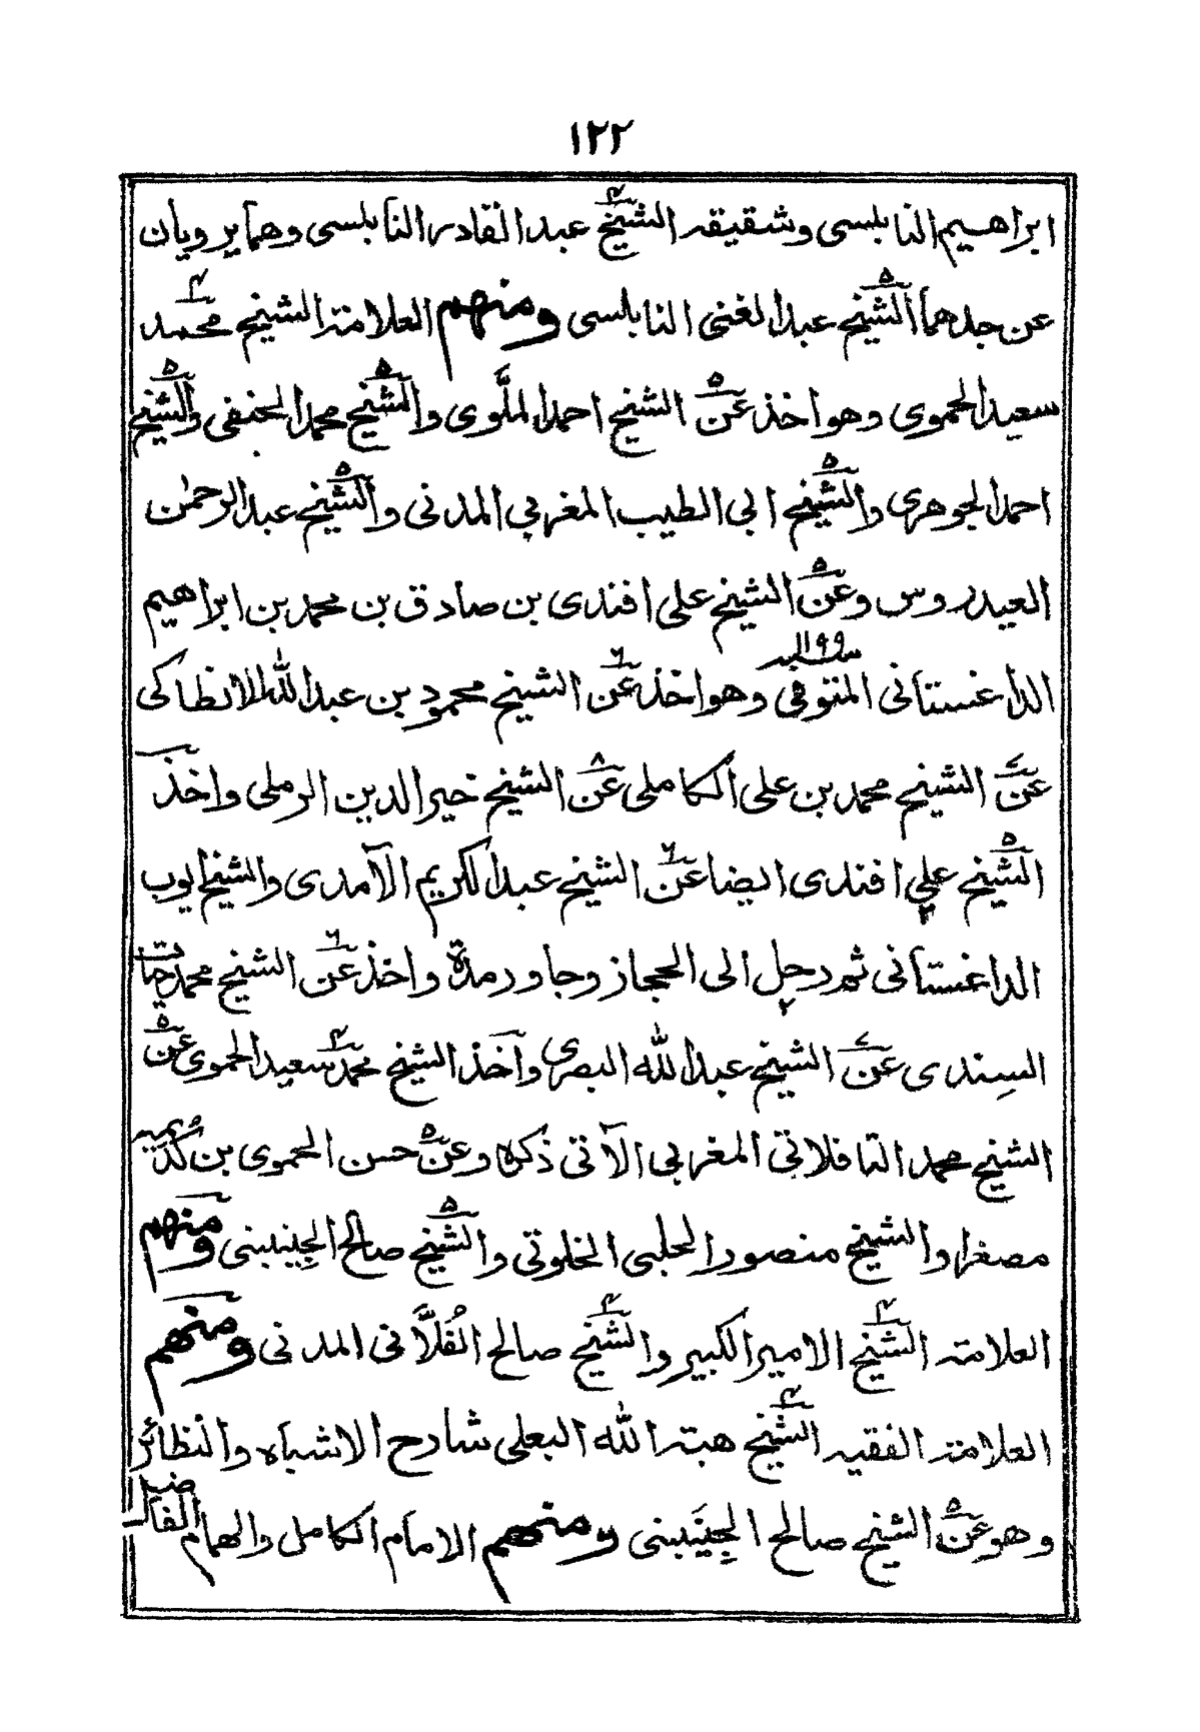 ١٢٢
ابراهيم النابلسى وشقيقه الشيخ عبد القادر النابلسى وهما يرويان
عن جدهما الشيخ عبد الغنى النابلسى ومنهم العلامة الشيخ محمد
سعيد الحموى وهو اخذ عن الشيخ احمد الملَّوى والشيخ محمد الحنفى والشيخ
احمد الجوهرى والشيخ ابي الطيب المغربي المدنى والشيخ عبد الرحمٰن
العيدروس وعن الشيخ على افندى بن صادق بن محمد بن ابراهيم
الداغستانى المتوفى وهو اخذ عن الشيخ محمود بن عبد الله الانطاكى
عن الشيخ محمد بن على الكاملى عن الشيخ خير الدين الرملى واخذ
الشيخ علي افندى ايضا عن الشيخ عبد الكريم الآمدى والشيخ ايوب
الداغستانى ثم رحل الى الحجاز وجاور مدة واخذ عن الشيخ محمد حيات
السِندى عن الشيخ عبد الله البصرى وآخذ الشيخ محمد سعيد الحموى عن
الشيخ محمد التافلاتي المغربي الآتى ذكره وعن حسن الحموى بن كُديمير
مصغرا والشيخ منصور الحلبى الخلوتى والشيخ صالح الجِنينى ومنهم
العلامة الشيخ الامير الكبير والشيخ صالح الفُلَّانى المدنى ومنهم
العلامة الفقيه الشيخ هبة الله البعلى شارح الاشباه والنظائر
وهو عن الشيخ صالح الجِينَينى ومنهم الامام الكامل والهمام الفاضل